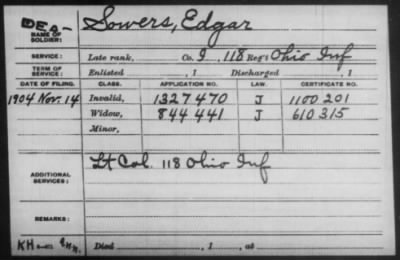 DES- Sowers, Edgar
NAME OF SOLDIER:
SERVICE: Late rank, Co. I, 118 Reg't Ohio Inf
TERM OF SERVICE: Enlisted , 1 Discharged , 1
DATE OF FILING. CLASS. APPLICATION NO. LAW. CERTIFICATE NO.
1904 Nov. 14 Invalid, 1327470 J 1100201
Widow, 844441 J 610315
Minor,
ADDITIONAL SERVICES: Lt Col. 118 Ohio Inf
REMARKS:
KH Died , 1 , at